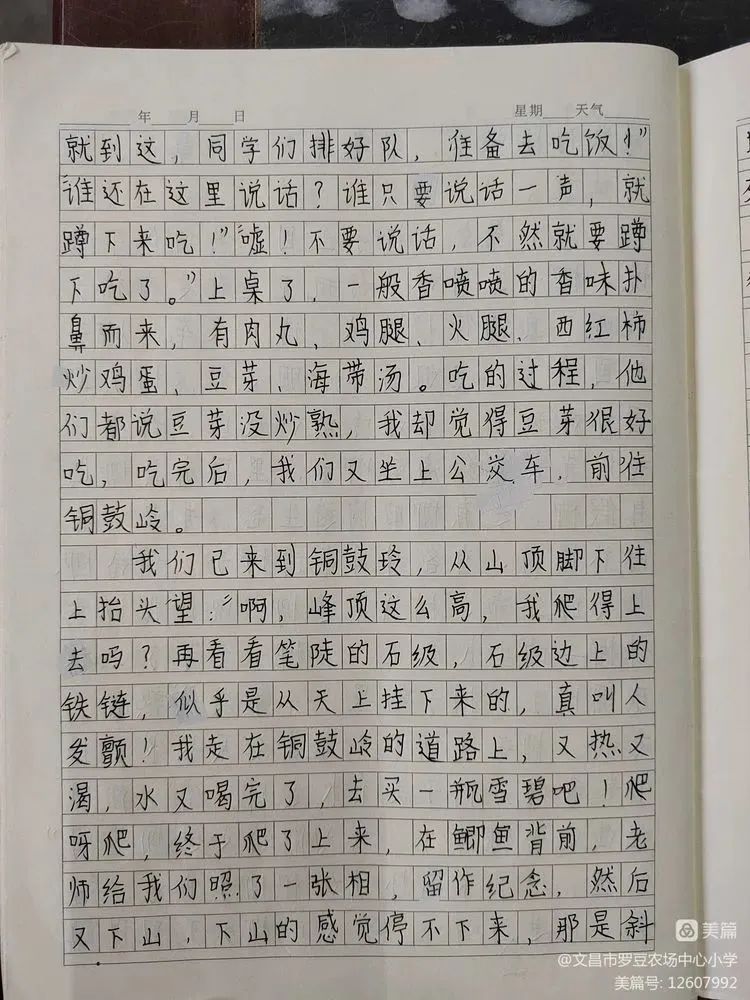 年 月 日 星期 天气
就到这，同学们排好队，准备去吃饭！”
“谁还在这里说话？谁只要说话一声，就
蹲下来吃！”“嘘！不要说话，不然就要蹲
下吃了。”上桌了，一般香喷喷的香味扑
鼻而来，有肉丸、鸡腿、火腿、西红柿
炒鸡蛋、豆芽、海带汤。吃的过程，他
们都说豆芽没炒熟，我却觉得豆芽很好
吃，吃完后，我们又坐上公交车，前往
铜鼓岭。
我们已来到铜鼓玲，从山顶脚下往
上抬头望：“啊，峰顶这么高，我爬得上
去吗？再看看笔陡的石级，石级边上的
铁链，似乎是从天上挂下来的，真叫人
发颤！我走在铜鼓岭的道路上，又热又
渴，水又喝完了，去买一瓶雪碧吧！爬
呀爬，终于爬了上来，在鲫鱼背前，老
师给我们照了一张相，留作纪念，然后
又下山，下山的感觉停不下来，那是斜
美篇
@文昌市罗豆农场中心小学
美篇号: 12607992